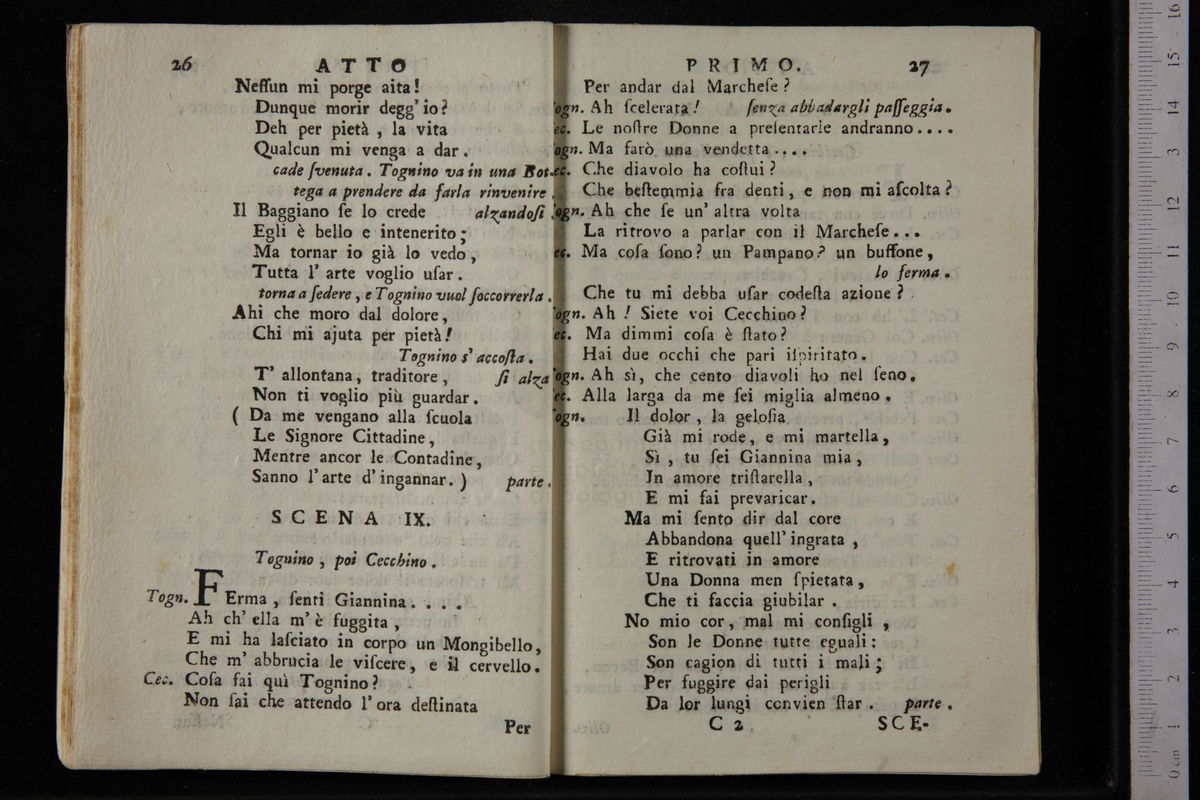 26 ATTO
Neſſun mi porge aita!
Dunque morir degg' io?
Deh per pietà, la vita
Qualcun mi venga a dar.
cade ſvenuta. Tognino va in una Bot-
tega a prendere da farla rinvenire.
Il Baggiano ſe lo crede alzandoſi.
Egli è bello e intenerito;
Ma tornar io già lo vedo,
Tutta l' arte voglio uſar.
torna a ſedere, e Tognino vuol ſoccorrerla.
Ahi che moro dal dolore,
Chi mi ajuta per pietà!
Tognino s' accoſta.
T' allontana, traditore, ſi alza
Non ti voglio più guardar.
( Da me vengano alla ſcuola
Le Signore Cittadine,
Mentre ancor le Contadine,
Sanno l' arte d' ingannar. ) parte.
SCENA IX.
Tognino, poi Cecchino.
Togn. FErma, ſenti Giannina. . . .
Ah ch' ella m' è fuggita,
E mi ha laſciato in corpo un Mongibello,
Che m' abbrucia le viſcere, e il cervello.
Cec. Coſa fai quì Tognino?
Non ſai che attendo l' ora deſtinata
Per
PRIMO. 27
Per andar dal Marcheſe?
ogn. Ah ſcelerata! ſenza abbadargli paſſeggia.
ec. Le noſtre Donne a preſentarle andranno....
ogn. Ma farò una vendetta....
ec. Che diavolo ha coſtui?
Che beſtemmia fra denti, e non mi aſcolta?
ogn. Ah che ſe un' altra volta
La ritrovo a parlar con il Marcheſe...
ec. Ma coſa ſono? un Pampano? un buffone,
lo ferma.
Che tu mi debba uſar codeſta azione?
ogn. Ah! Siete voi Cecchino?
ec. Ma dimmi coſa è ſtato?
Hai due occhi che pari iſpiritato.
ogn. Ah sì, che cento diavoli ho nel ſeno.
ec. Alla larga da me ſei miglia almeno.
ogn. Il dolor, la geloſia
Già mi rode, e mi martella,
Sì, tu ſei Giannina mia,
In amore triſtarella,
E mi fai prevaricar.
Ma mi ſento dir dal core
Abbandona quell' ingrata,
E ritrovati in amore
Una Donna men ſpietata,
Che ti faccia giubilar.
No mio cor, mal mi conſigli,
Son le Donne tutte eguali:
Son cagion di tutti i mali;
Per fuggire dai perigli
Da lor lungi convien ſtar. parte.
C 2 SCE-